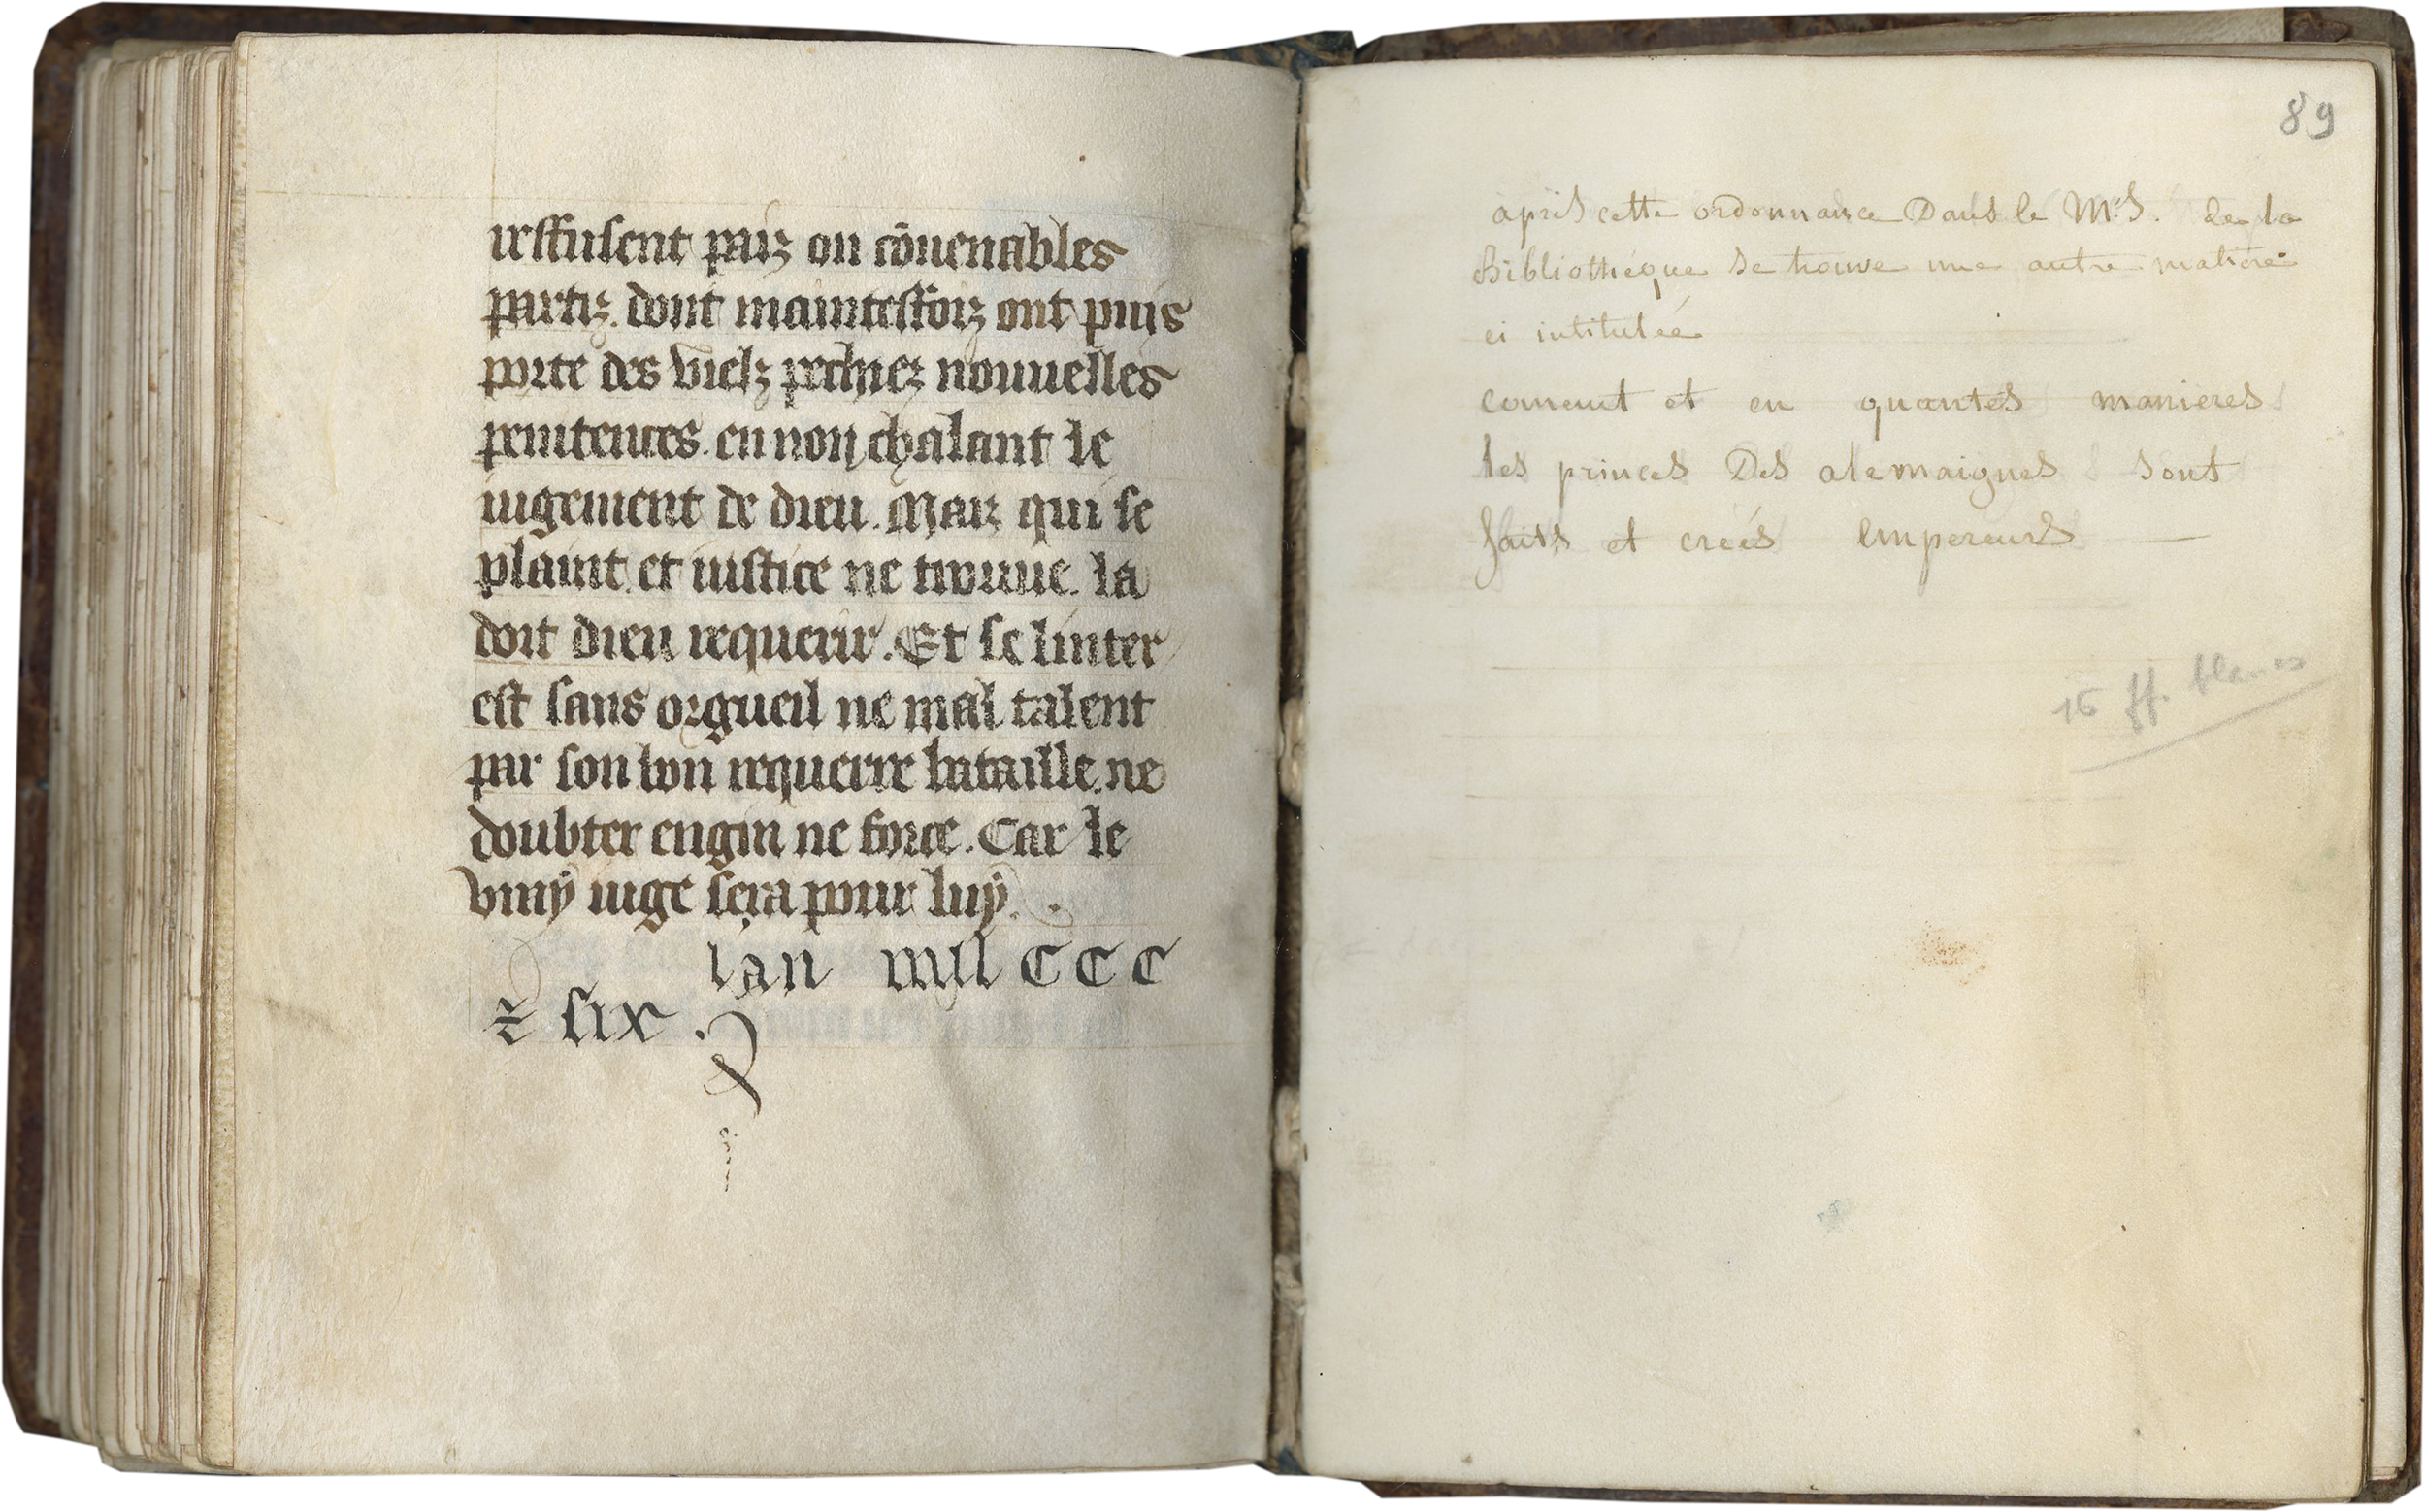 reffusent paiz ou cōuenables
partiz. dont maintesfoiz ont puis
porte des vielz pechiez nouuelles
penitences. en non chalant le
iugement de dieu. Maiz qui se
plaint et iustice ne trouue. la
doit dieu requerir. Et se linter
est sans orgueil ne mal talent
par son bon requerre bataille. ne
doubter engin ne force. Car le
vray iuge sera pour luy.
lan mil CCC
⁊ six.
89
après cette ordonnance Dans le Mss. de la
Bibliothéque se trouve une autre matière
ci intitulée
coment et en quantes manieres
les princes Des alemaignes sont
faits et creés empereurs —
16 ff. blancs